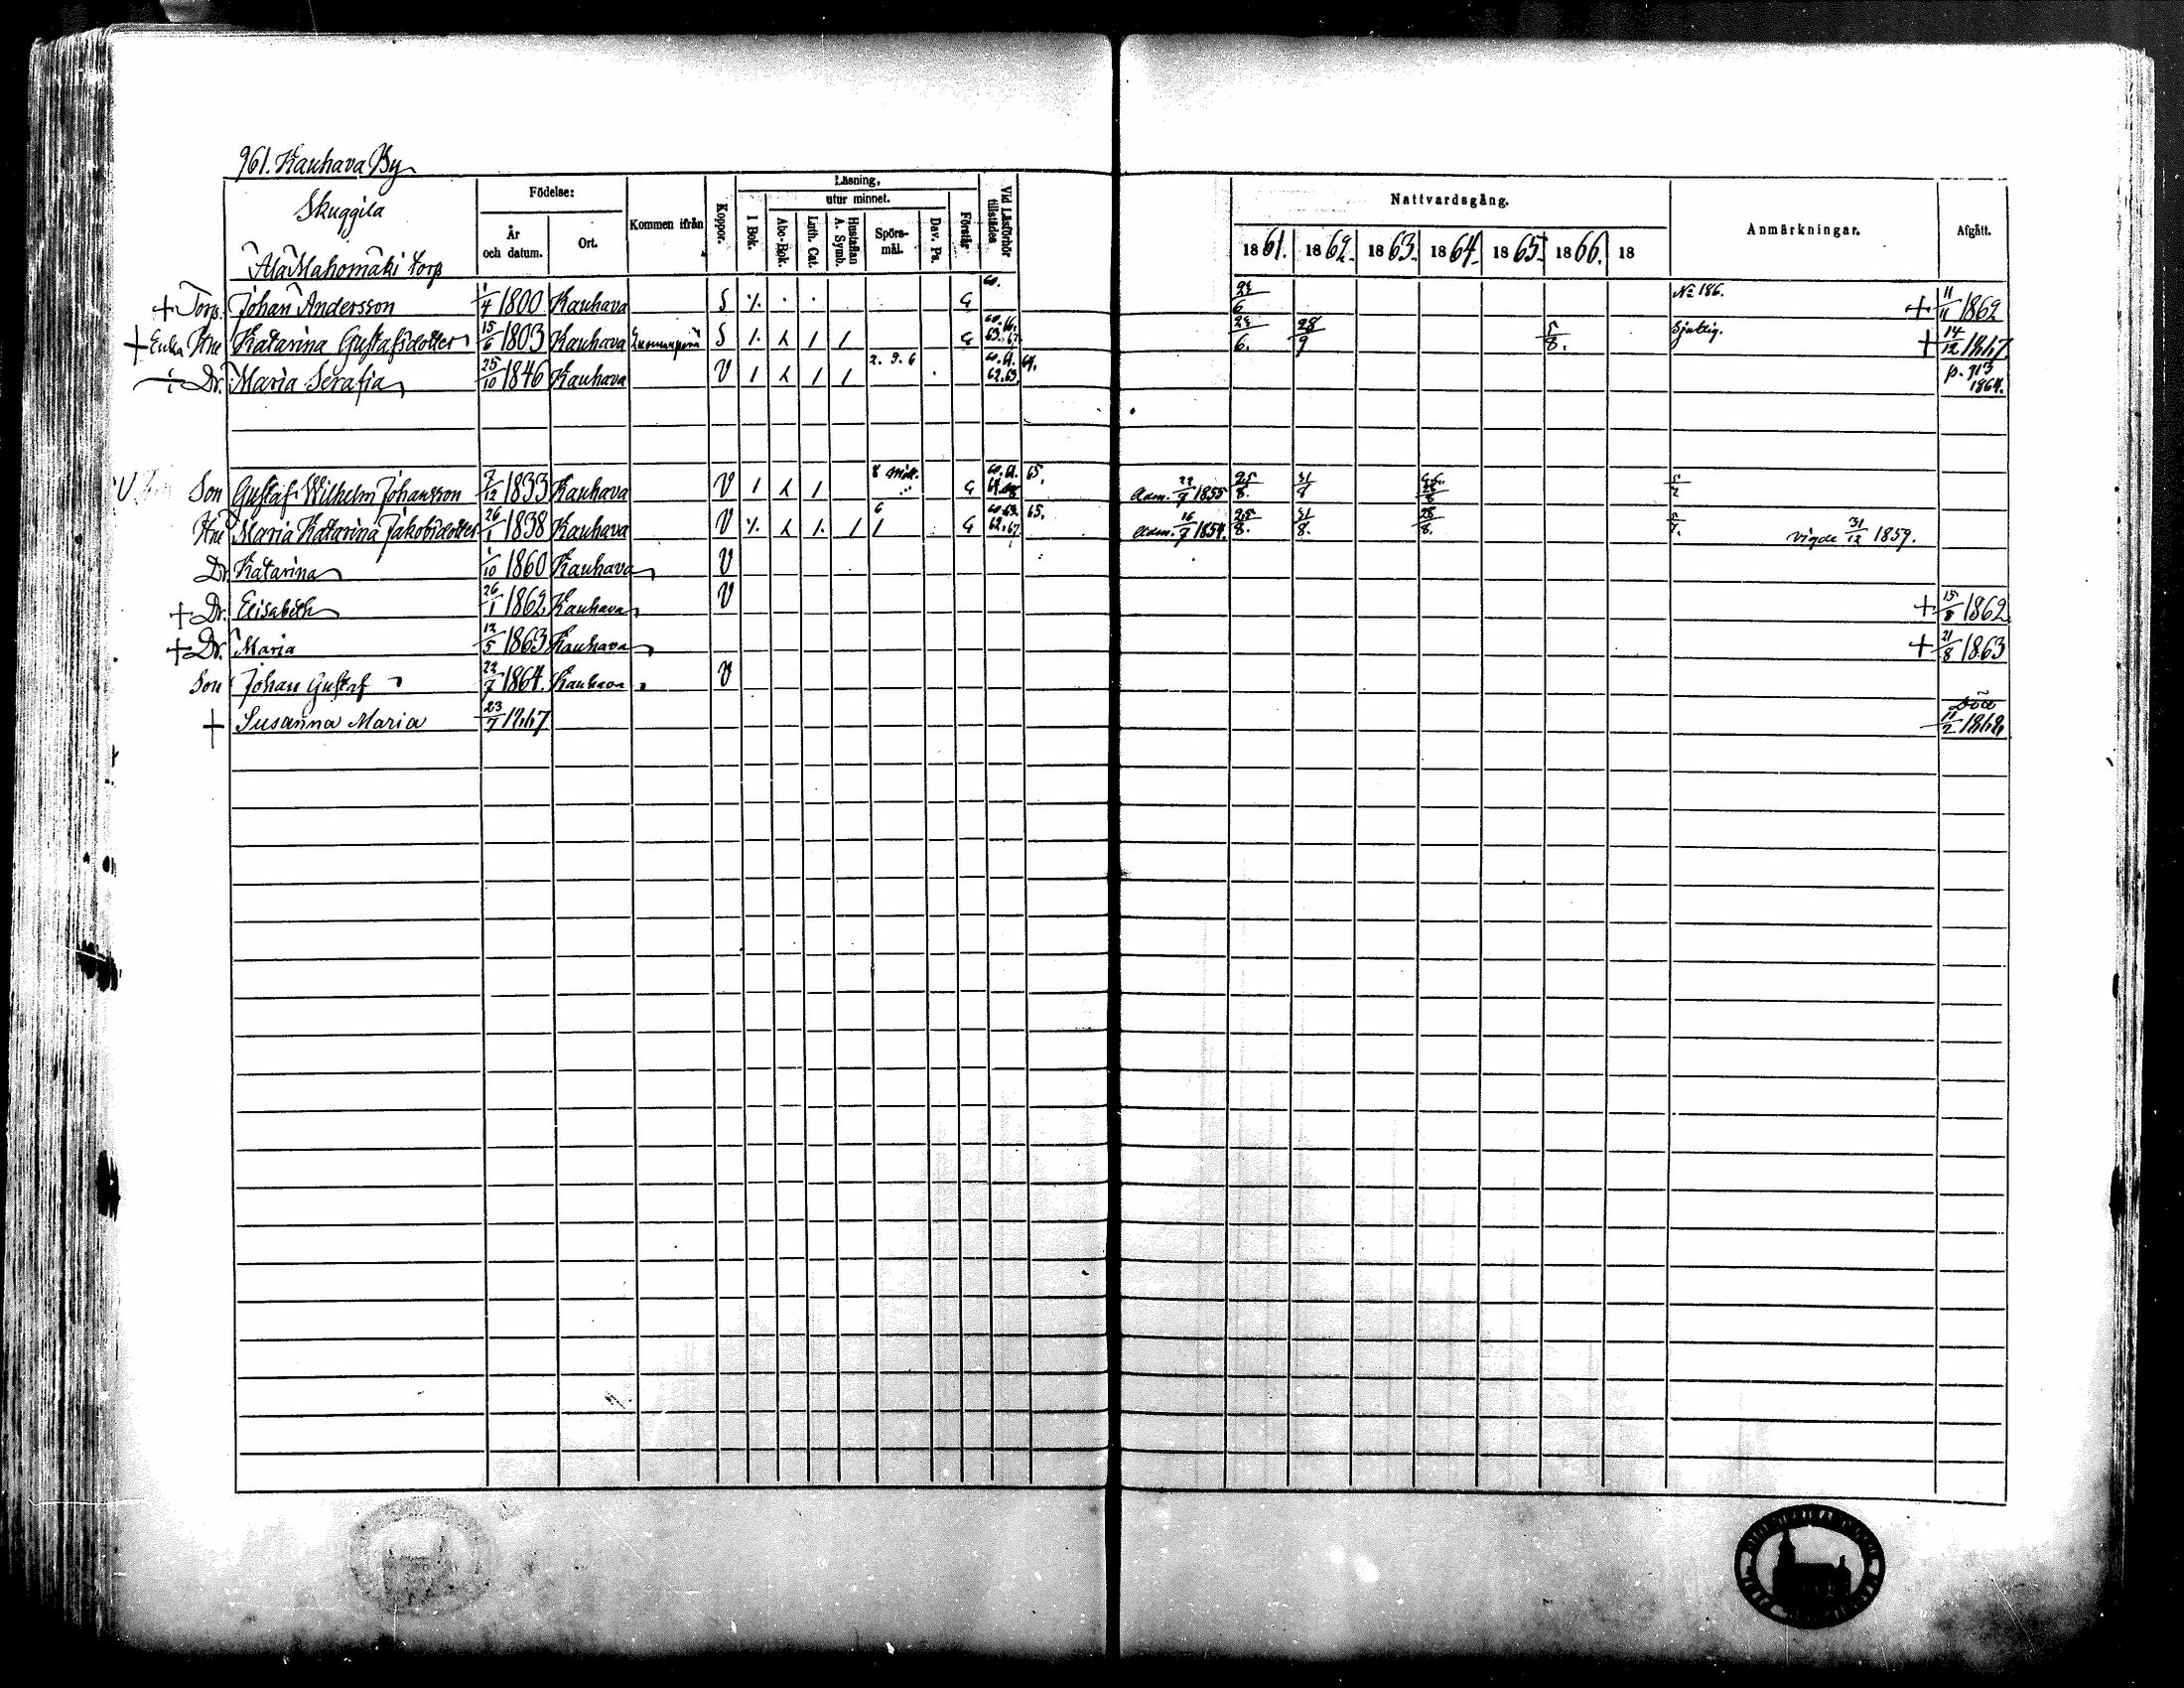 961. Kauhava By
Skuggila
AlaMahomäki torp
Födelse:
År och datum.
Ort.
Kommen ifrån
Koppor.
Läsning,
utur minnet.
I Bok.
Abc-Bok.
Luth. Cat.
Hustaflan A. Symb.
Spörs-mål.
Dav. Ps.
Förstår
Vid Läsförhör tillstädes
Nattvardsgång.
1861. 1862. 1863. 1864. 1865. 1866. 18
Anmärkningar.
Afgått.
+ Torp. Johan Andersson 1/4 1800 Kauhava S G 60. 24/6 No 186. + 11/11 1862
+ Enka Hne Katarina Gustafsdotter 15/6 1803 Kauhava S G 28/9 5/8. Sjuklig. + 14/12 1867
Dr. Maria Serafia 25/10 1846 Kauhava V 2. 3. 6 60. 61. 62. 63. 64. p. 913 1864.
Son Gustaf Wilhelm Johansson 7/12 1833 Kauhava V G 65. Adm. 22/7 1855 25/8. 31/8
Hne Maria Katarina Jakobsdotter 26/1 1838 Kauhava V 6 G 65. Adm. 16/7 1854. 25/8. 31/8. 28/8. vigde 31/12 1859.
Dr Katarina 1/10 1860 Kauhava V
+ Dr. Elisabeth 26/1 1862 Kauhava V + 15/8 1862
+ Dr. Maria 12/5 1863 Kauhava + 21/8 1863
Son Johan Gustaf 22/7 1864. Kauhava V
+ Susanna Maria 23/7 1867 Död 11/2 1868